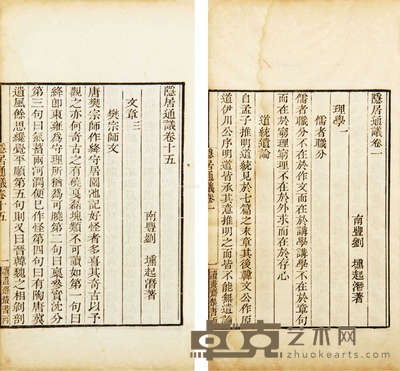 隱居通議卷一
南豐劉 壎起潛著
理學一
儒者職分
儒者職分不在於作文而在於講學講學不在於章句
而在於窮理窮理不在於外求而在於存心
道統遺論
自孟子推明道統見於七篇之末章其後韓文公作原
道伊川公序明道皆承其意推明之而皆不能無遺論
隱居通議卷一
一
讀畫齋叢書
隱居通議卷十五
南豐劉 壎起潛著
文章三
樊宗師文
唐樊宗師作絳守居園池記好怪者多喜其奇古以予
觀之亦何奇古之有磽戛磊塊類不可讀如第一句曰
絳即東雍為守理所猶為可曉第二句曰稟參實沈分
第三句曰氣蓄兩河潤便已作怪第四句曰有陶唐冀
遺風餘思纔覺平順第五句則又曰晉韓魏之相剝剖
隱居通議卷十五
一
讀畫齋叢書
艺术网
zhuokearts.com